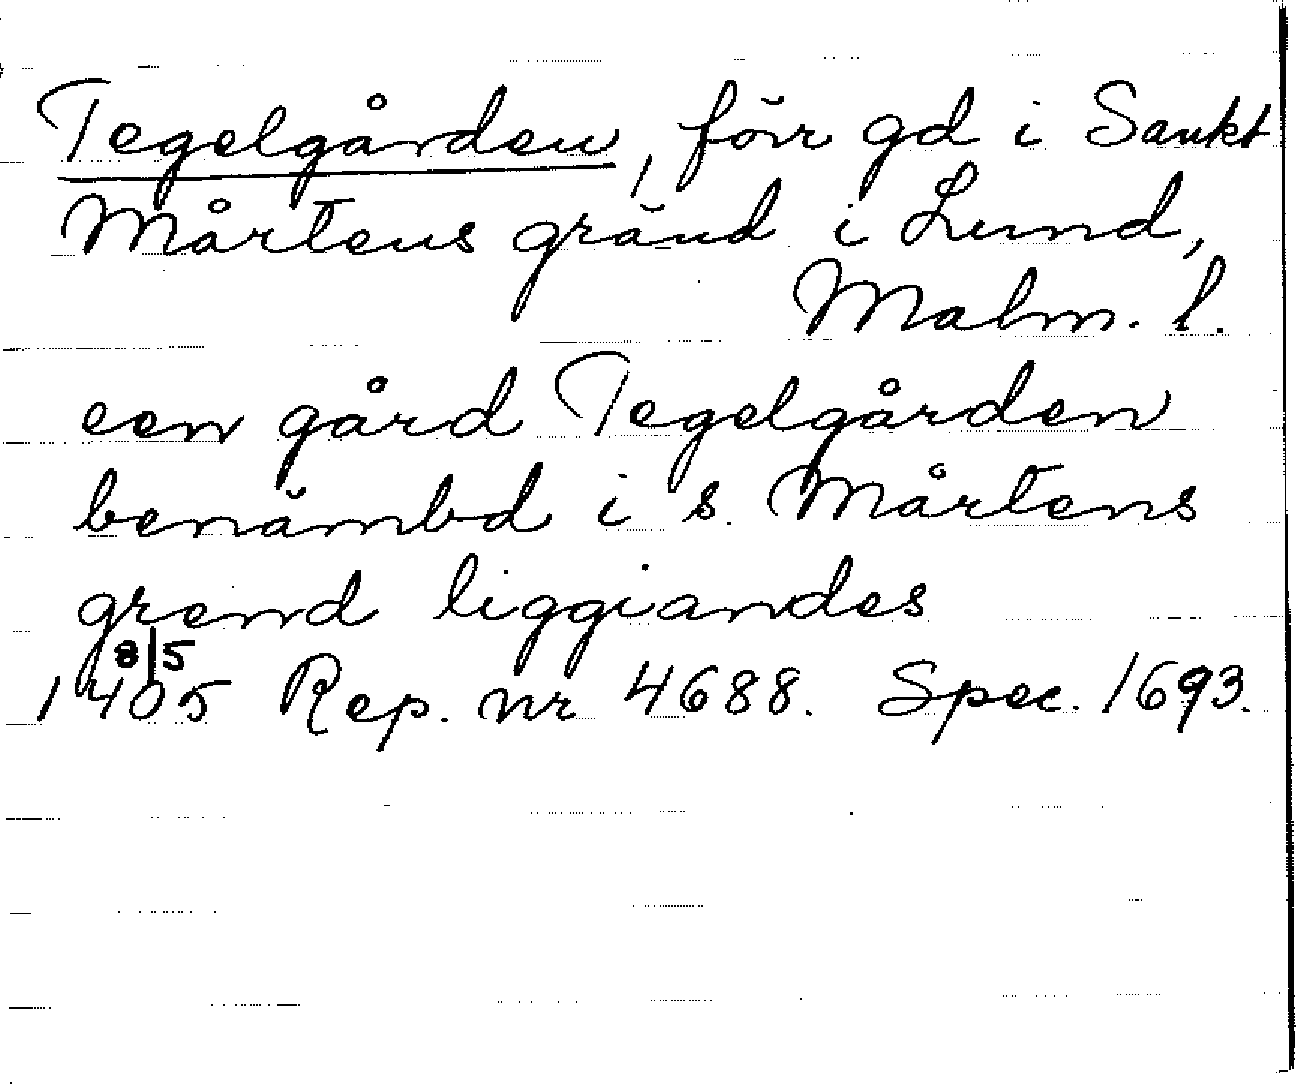 Tegelgården, förr gd i Sankt
Mårtens gränd i Lund,
Malm. l.
een gård Tegelgården
benämbd i s. Mårtens
grend liggiandes
8/5
1405 Rep. nr 4688. Spec. 1693.